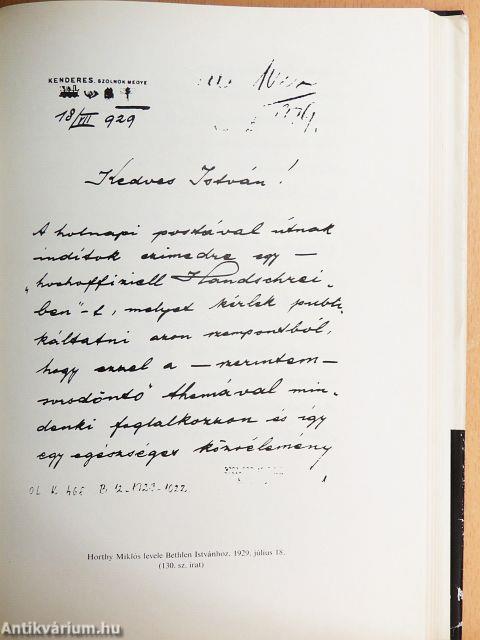 KENDERES, SZOLNOK MEGYE
18/VII 929
Kedves István!
A holnapi postával útnak
indítok czimedre egy —
"hochoffiziell Handschrei-
ben"-t, melyet kérlek publi-
káltatni azon szempontból,
hogy ezzel a — szerintem —
sorsdöntő themával min-
denki foglalkozzon és így
egy egészséges közvélemény
OL K 468 B/2
Horthy Miklós levele Bethlen Istvánhoz. 1929. július 18.
(130. sz. irat)
Antikvárium.hu